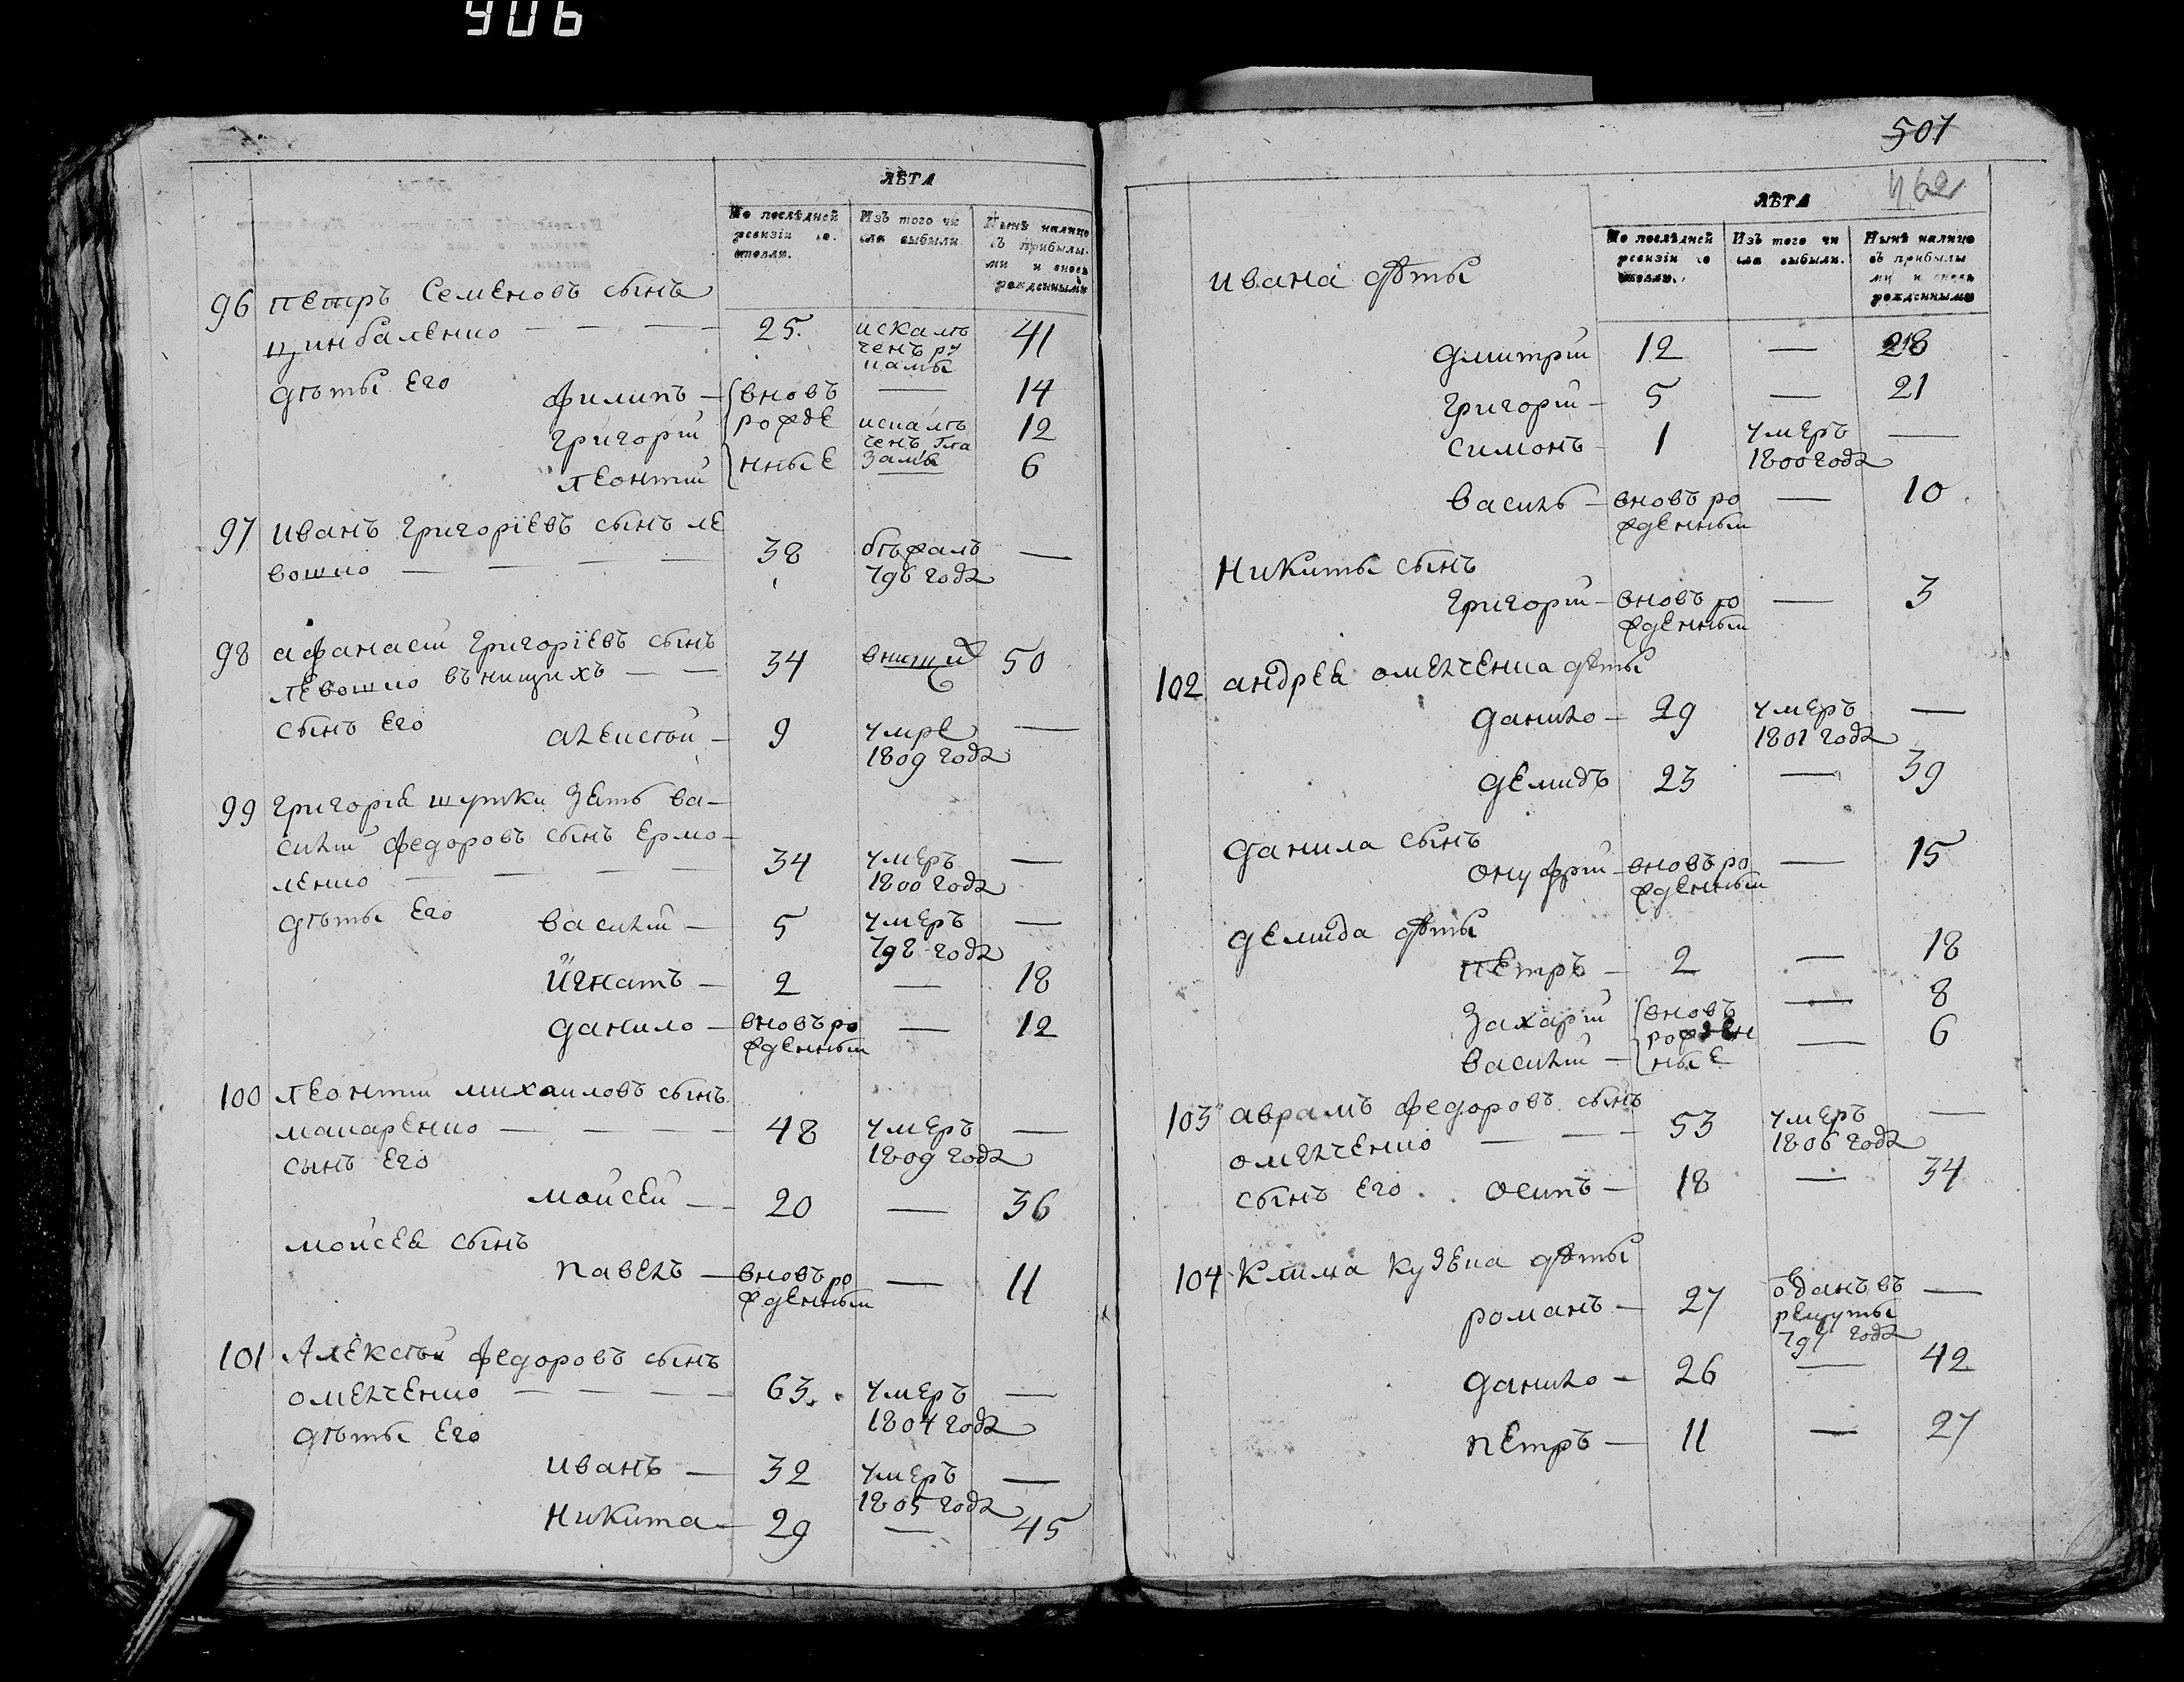 906
ЛѢТА
По послѣдней ревизіи со­стояли.
Изъ того чи­сла выбыли.
Нынѣ налицо съ прибылы­ми и вновь рожденными
96 Петръ Семеновъ сынъ
Цинбаленко — — — 25. искалѣченъ руками 41
дѣти Его Филипъ — вновъ — 14
Григорій рожде искалѣченъ глазами 12
Леонтій нные — 6
97 Иванъ Григоріевъ сынъ ле
вошко — — — — 38 бѣжалъ 796 года —
98 Афанасій Григоріевъ сынъ
левошко въ нищихъ — — 34 внищий 50
сынъ Его Алексѣй — 9 умре 1809 года —
99 Григорія шутки Зять ва—
силій Федоровъ сынъ Ермо—
ленко — — — — 34 умеръ 1800 года —
дѣти Его василій — 5 умеръ 798 года —
Игнатъ — 2 — 18
Данило — вновъ рожденный — 12
100 Леонтій михаиловъ сынъ
макаренко — — — 48 умеръ 1809 года —
сынъ Его
мойсей — 20 — 36
мойсея сынъ
павелъ — вновъ рожденный — 11
101 Алексѣй Федоровъ сынъ
омелченко — — — — 63. умеръ 1804 года —
дѣти Его
иванъ — 32 умеръ 1805 года —
Никита — 29 — 45
501
462
ЛѢТА
По послѣдней ревизіи со­стояли.
Изъ того чи­сла выбыли.
Нынѣ налицо съ прибылы­ми и вновь рожденными
ивана дѣти
Дмитрій 12 — 28
Григорій — 5 — 21
Симонъ — 1 умеръ 1800 года —
Василь — вновъ рожденный — 10
Никиты сынъ
Григорій — вновъ рожденный — 3
102 андрея омелченка дѣти
Данило — 29 умеръ 1801 года —
Демидъ 23 — 39
Данила сынъ
Онуфрій — вновъ рожденный — 15
Демида дѣти
Петръ — 2 — 18
Захарій вновъ — 8
Василій — рожденные — 6
103 аврамъ Федоровъ сынъ
омелченко — — 53 умеръ 1806 года —
сынъ Его. Осипъ — 18 — 34
104 Клима Кузьпа дѣти
романъ — 27 отданъ въ рекруты 797 года —
Данило — 26 — 42
Петръ — 11 — 27